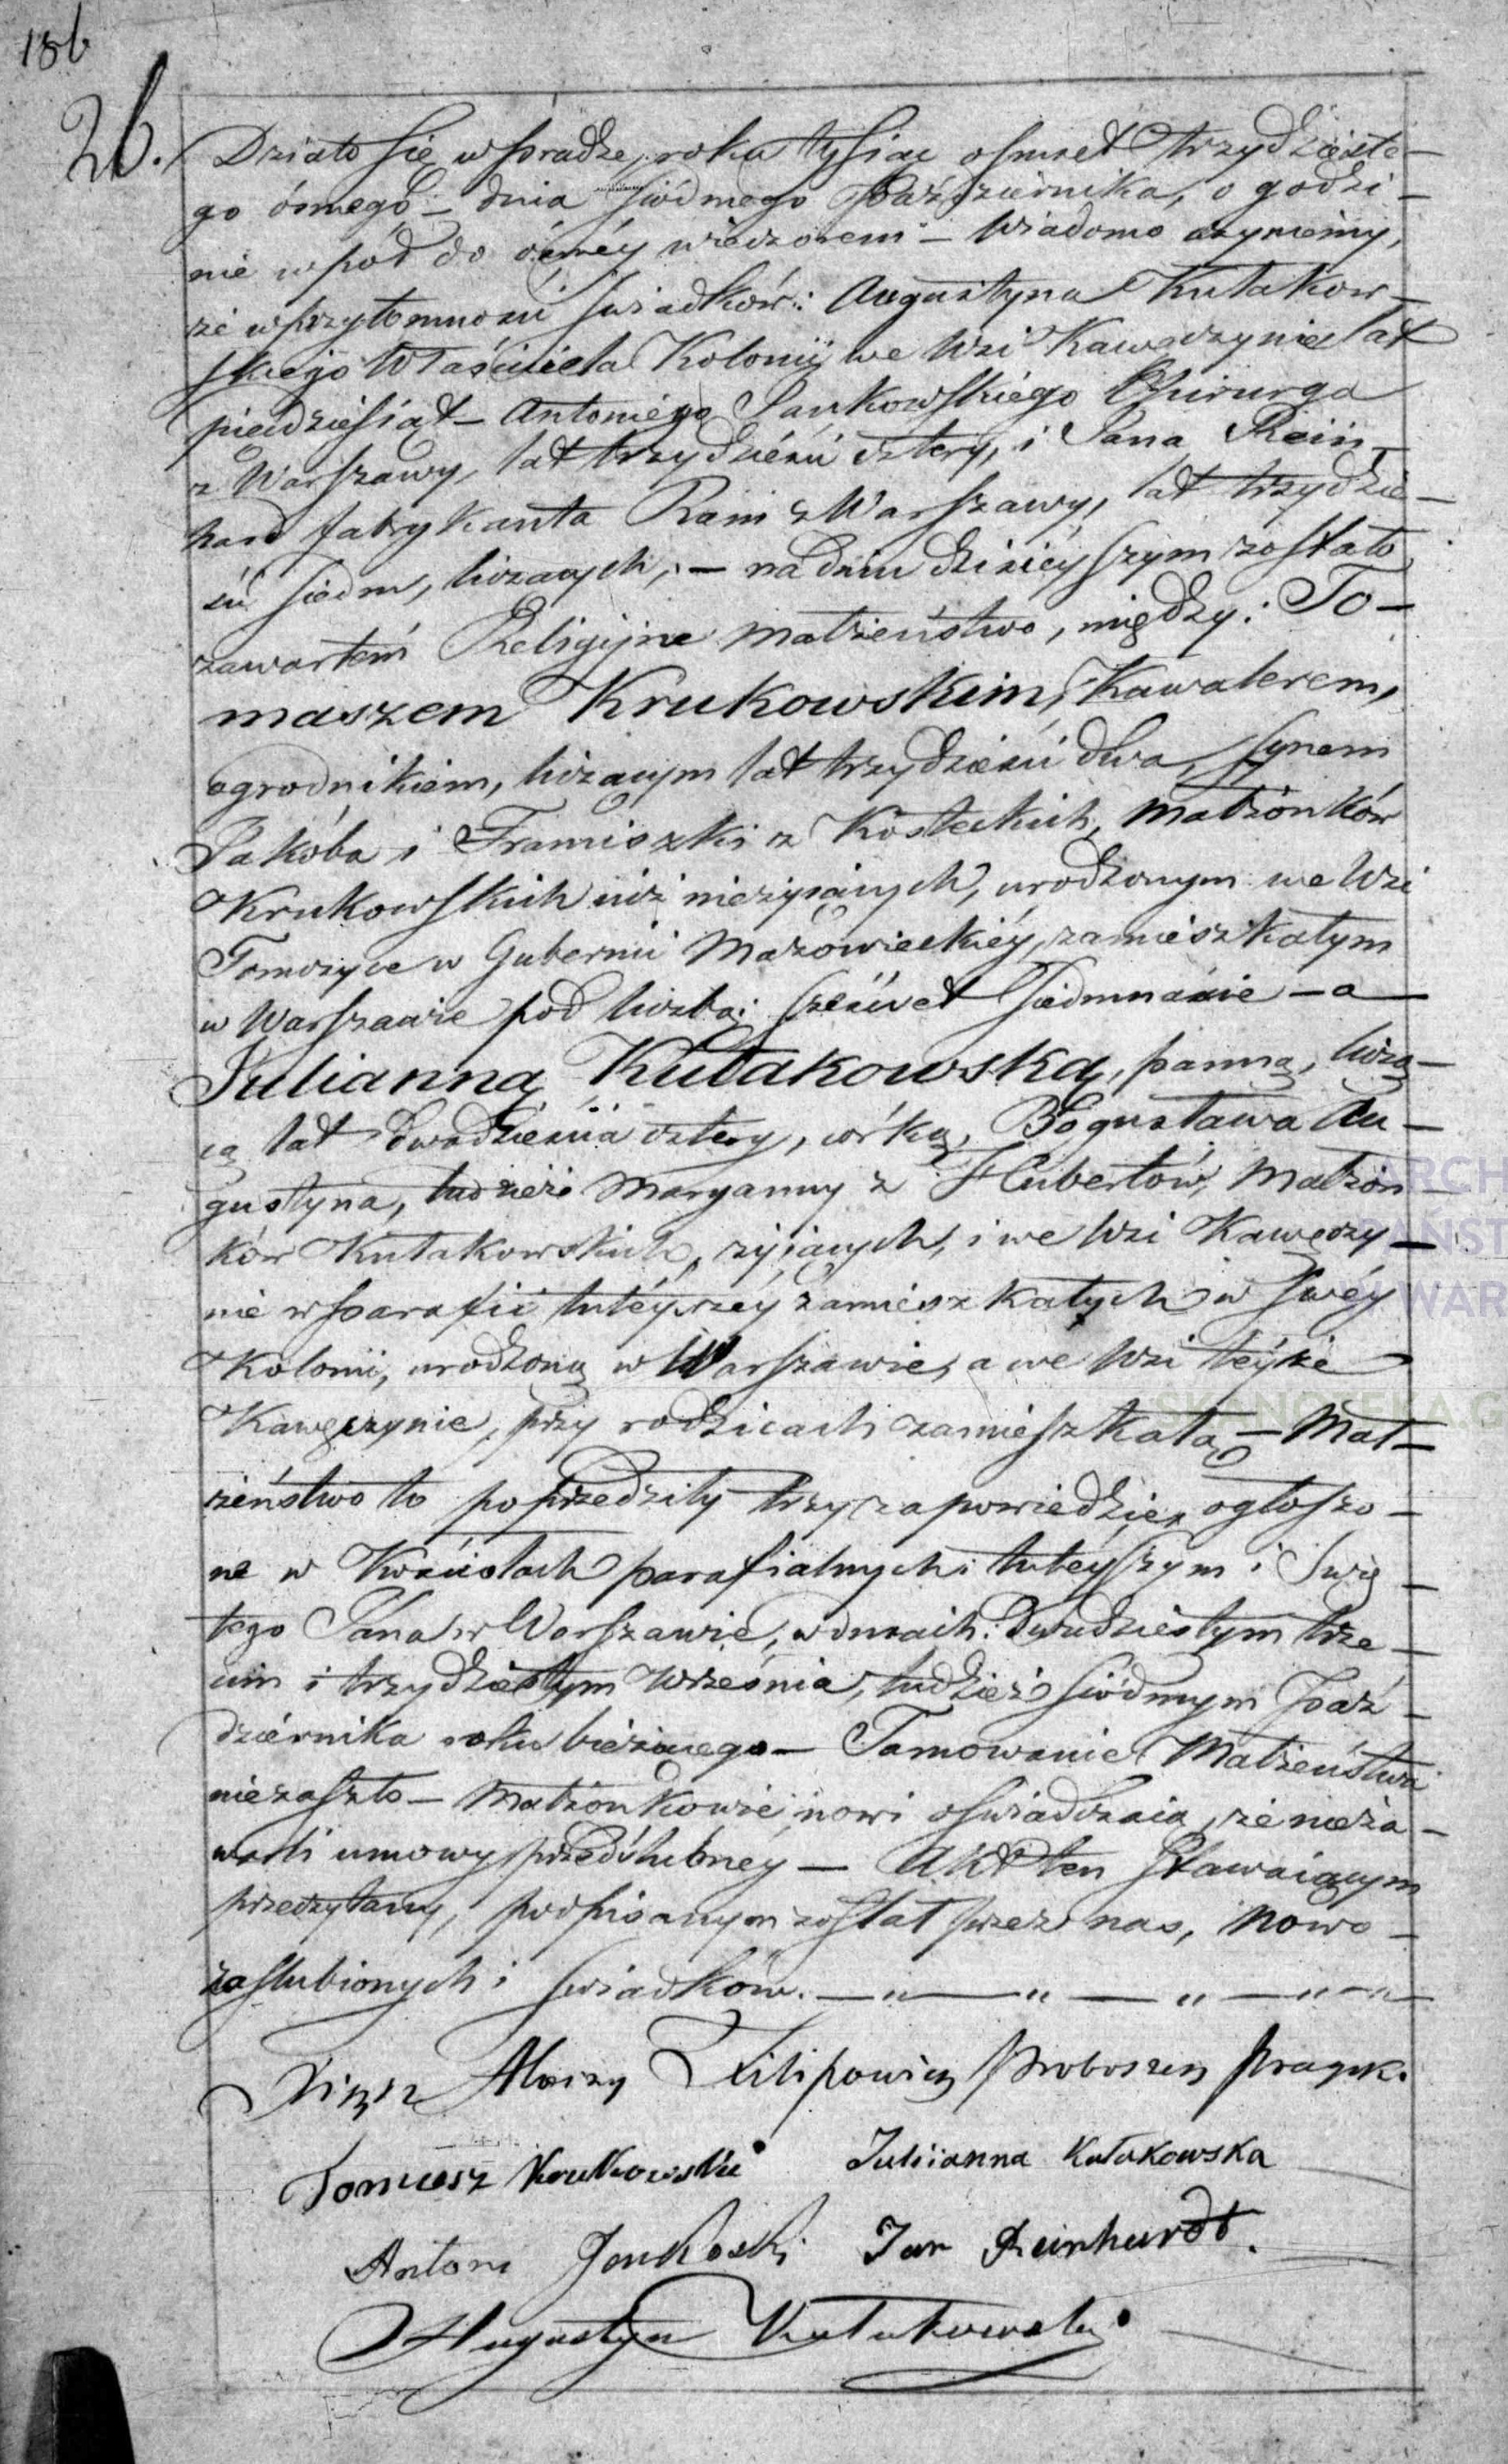 186
26.
Działo się w Pradze, roku tysiąc ośmset trzydzieste-
go ósmego – dnia siódmego Października, o godzi-
nie wpół do ósméy wieczorem – Wiadomo czyniemy,
że w przytomności świadków: Augustyna Kułakow-
skiego Właściciela Kolonii we Wsi Kawęczynie lat
pięćdziesiąt – Antoniego Jankowskiego Chirurga
z Warszawy, lat trzydzieści cztery, i Jana Rein-
hard fabrykanta Ram z Warszawy, lat trzydzie-
ści siedm, liczących, – na dniu dzisieyszym zostało
zawartem Religijne małżeństwo, między: To-
maszem Krukowskim, Kawalerem,
ogrodnikiem, liczącym lat trzydzieści dwa, synem
Jakóba i Franciszki z Kosteckich, Małżonków
Krukowskich już nieżyjących, urodzonym we Wsi
w Gubernii Mazowieckiéy, zamieszkałym
w Warszawie pod liczbą: sześćset siedmnaście – a
Julianną Kułakowską, panną, liczą-
cą lat dwadzieścia cztery, córką, Bogusława Au-
gustyna, tudzież Maryanny z Hubertów, Małżon-
ków Kułakowskich, żyjących, i we Wsi Kawęczy-
nie w Parafii tutéyszéy zamieszkałych w swéy
Kolonii, urodzoną w Warszawie, a we Wsi téyże
Kawęczynie, przy rodzicach zamieszkałą – Mał-
żeństwo to poprzedziły trzy zapowiedzie, ogłoszo-
ne w Kościołach parafialnych: tuteyszym i Swię-
tego Jana w Warszawie, w dniach: Dwudziestym trze-
cim i trzydziestym Września, tudzież siódmym Paź-
dziernika roku bieżącego – Tamowanie Małżeństwa
niezaszło – Małżonkowie nowi oświadczaią, że nieza-
warli umowy przedślubnéy – Akt ten Stawaiącym
przeczytany, podpisanym został przez nas, Nowo-
zaślubionych i świadków. – „ – „ – „ – „ – „ –
Xiądz Aloizy Filipowicz Proboszcz Pragsk.
Tomasz Krukowski Julianna Kułakowska
Antoni Jankoski Jan Reinhardt.
Augustyn Kułakowski
ARCH
PAŃST
W WAR
SKANOTEKA.G